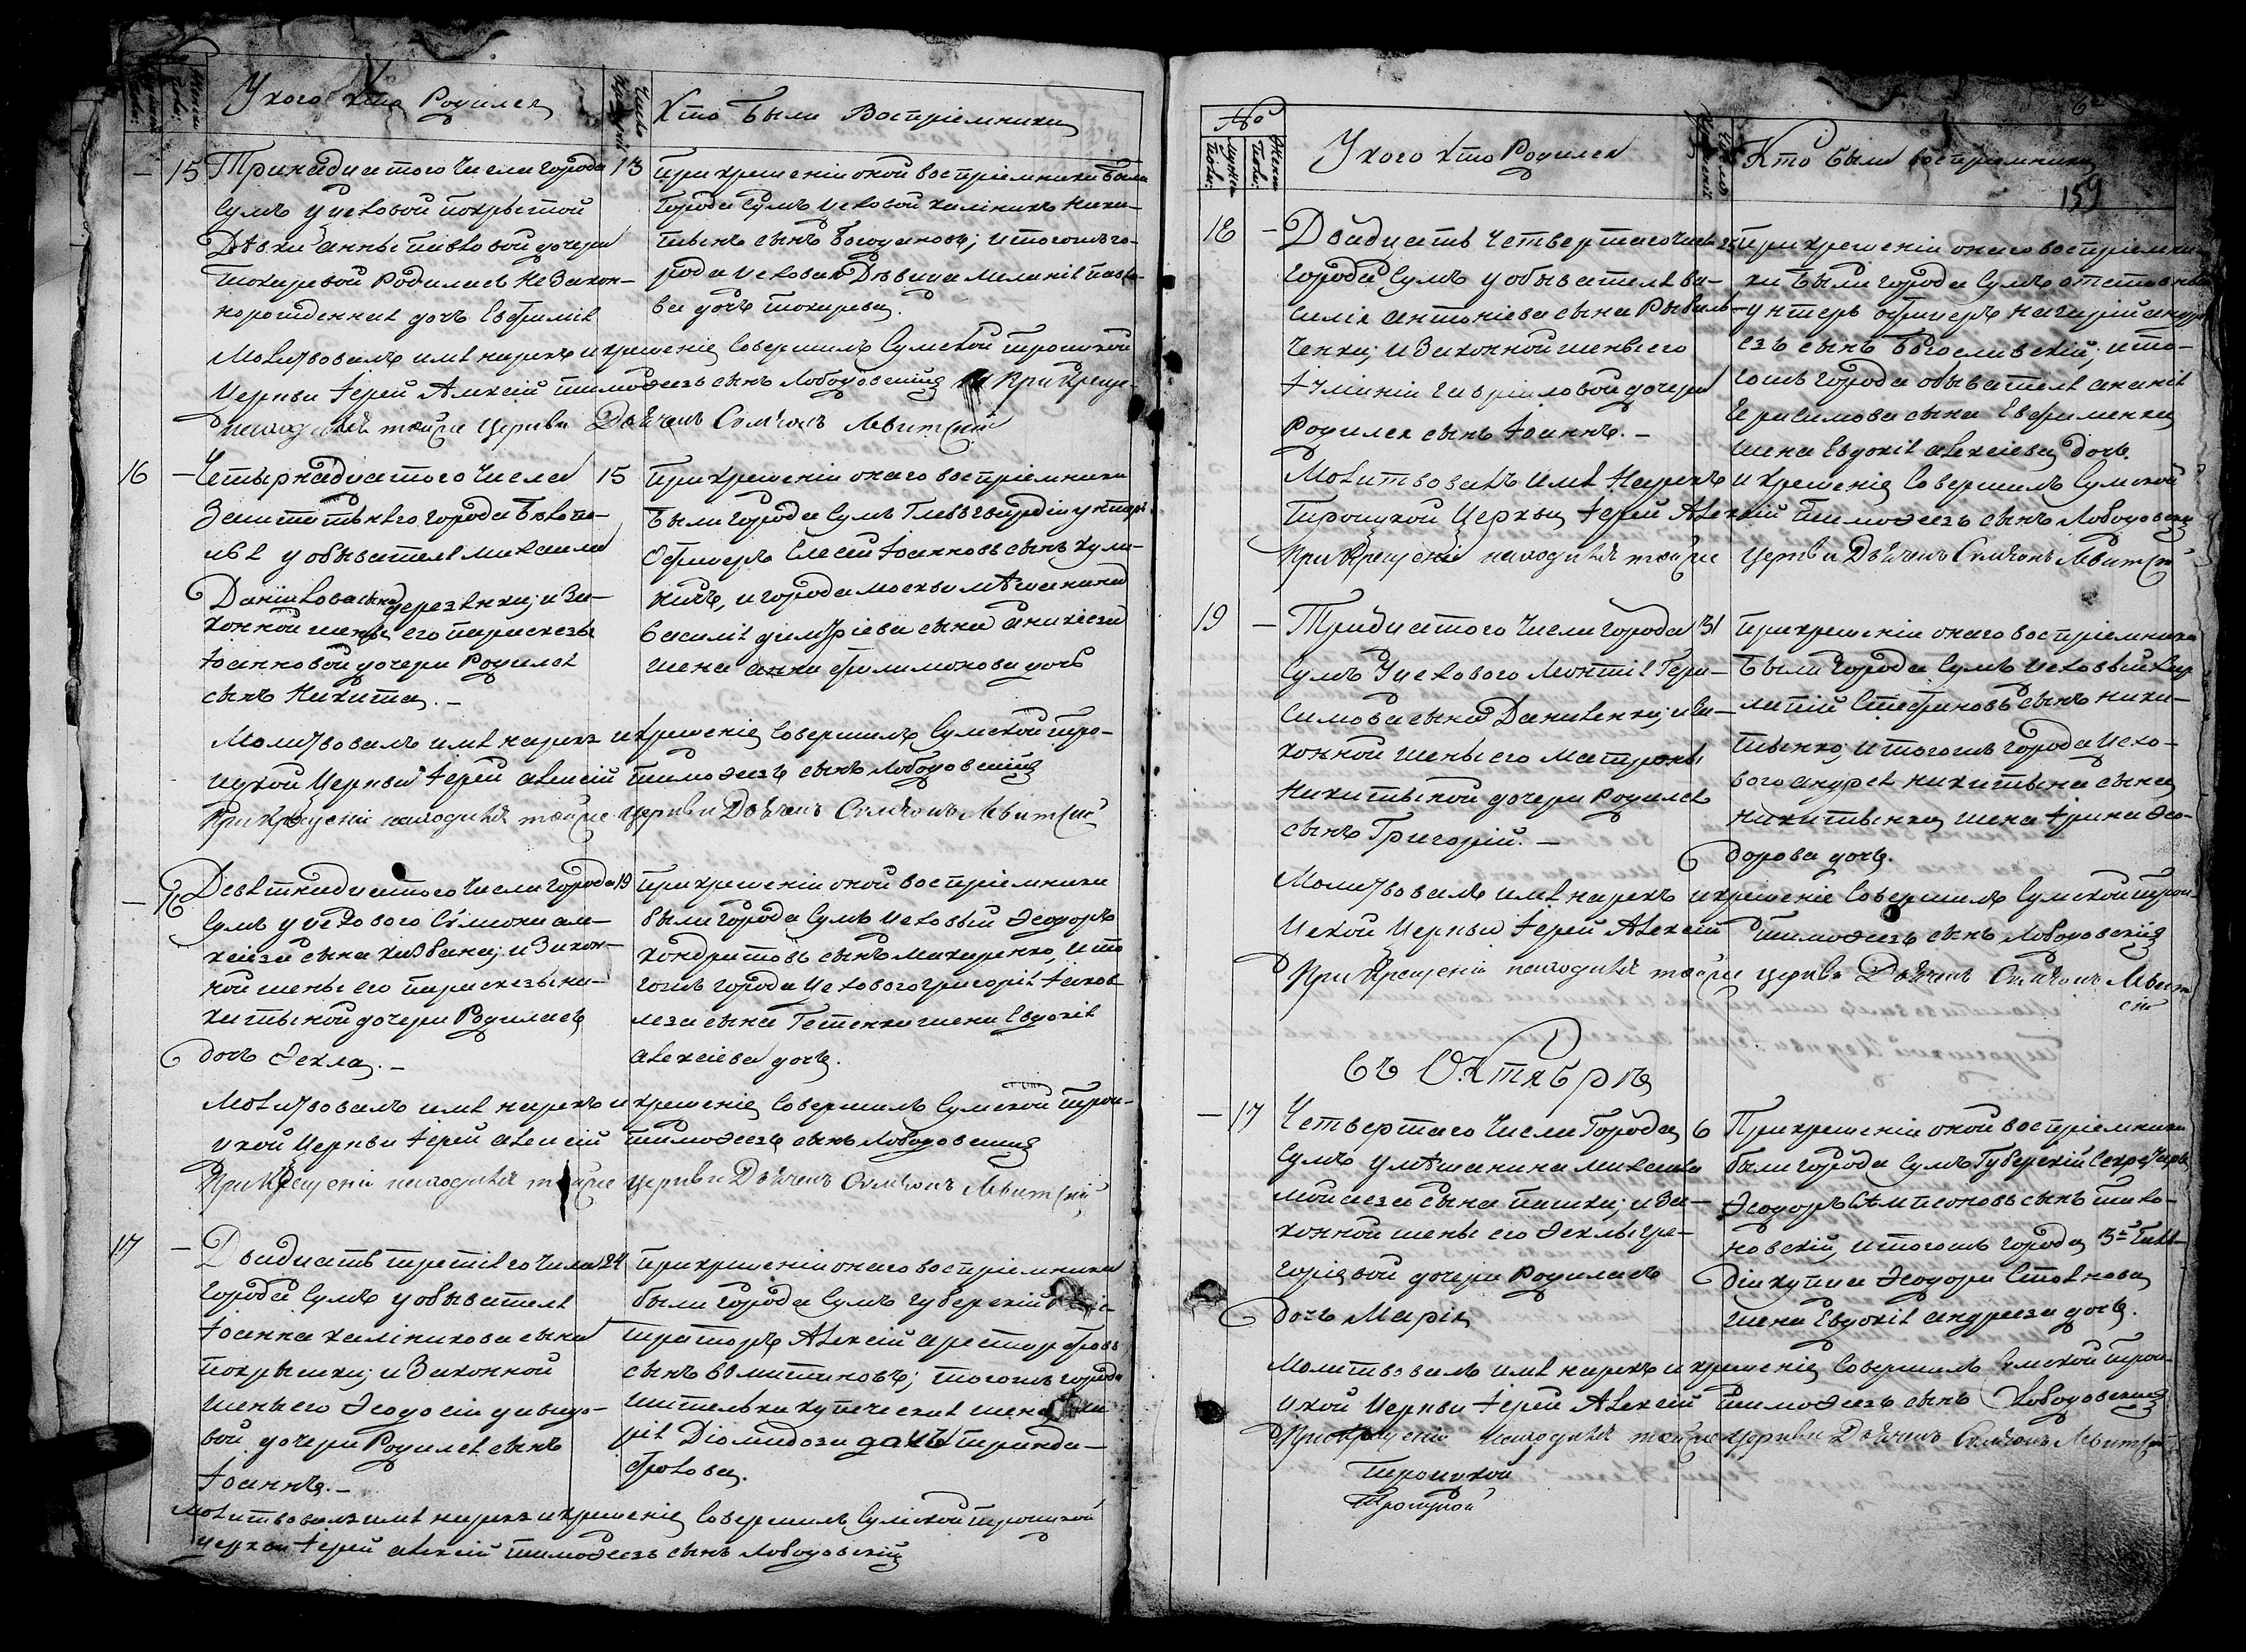 Мужеска полу:
Женска полу:
У кого кто Родился
Число крещеній
Кто были Воспріемники
— 15 Тринадцатого числа города 13
Сумъ уцеховой покрытой
Дѣвки Анны Павловой дочери
Токаревой Родилась незакон-
норожденная дочь Евфимія
При крещеніи оной воспріемники были
города Сумъ цеховой Калиникъ Ники-
тинъ сынъ Богдановъ; и тогожъ го-
рода цехован Дѣвица Меланія Павло-
ва дочь Токарева.
Молитвовалъ имя нарекъ и крещеніе совершилъ Сумской Троицкой
Церкви Іерей Алексій Тимофеевъ сынъ Лободовскій При Креще-
находился тойже Церкви Дьячекъ Симеонъ Левитскій
16 — Четырнадцатого числа 15
Заштатнаго города Бѣлопо-
лья у обывателя Михаила
Данилова сына Деревянки; и За-
конной жены его Парасковьи
Іоанновой дочери Родился
сынъ Никита. —
При крещеніи онаго воспріемники
были города Сумъ Глейбъ гвардіи унтеръ
Офицеръ Елесей Іоанновъ сынъ Кули-
, и города Москвы мѣщанина
Василія Димитріева сына Аникіева
жена Анна Филимонова дочь
Молитвовалъ имя нарекъ и крещеніе совершилъ Сумской Тро-
ицкой Церкви Іерей Алексій Тимофеевъ сынъ Лободовскій
При Крещеніи находился тойже церкви Дьячекъ Симеонъ Левитскій
— 16 Девятнадцатого числа города 19
Сумъ у цехового Симона Але-
ксіева сына ; и Закон-
ной жены его Парасковьи Ни-
китиной дочери Родилась
дочь Фекла. —
При крещеніи оной воспріемники
были города Сумъ цеховый Феодоръ
Кондратовъ сынъ Макаренко, и то
гожъ города цехового Григорія Іаков
лева сына Гетенки жена Евдокія
Алексіева дочь.
Молитвовалъ имя нарекъ и крещеніе совершилъ Сумской Трои-
цкой Церкви Іерей Алексій Тимофеевъ сынъ Лободовскій
При Крещеніи находился тойже церкви Дьячекъ Симеонъ Левитскій
17 — Двадцать третяго числа 24
города Сумъ у обывателя
Іоанна Калиникова сына
Покрышки; и Законной
жены его Феодосіи Давидо-
вой дочери Родился сынъ
Іоаннъ. —
При крещеніи онаго воспріемники
были города Сумъ губерскій
траторъ Алексій Аристарховъ
сынъ ; тогожъ города
жителька купеческая жена
рія Діомидова дочь Транда-
филова.
Молитвовалъ имя нарекъ и крещеніе совершилъ Сумской Троицкой
церкви Іерей Алексій Тимофеевъ сынъ Лободовскій
№
Мужеска полу:
Женска полу:
У кого кто Родился
Число крещеній
Кто были воспріемники
159
18 — Двадцать четвертаго числа 25
города Сумъ у обывателя Ва-
силія Антоніева сына Рыбаль-
ченки; и Законной жены его
Іуліаніи Гавріиловой дочери
Родился сынъ Іоаннъ. —
При крещеніи онаго воспріемни-
ки были города Сумъ отставный
унтеръ офицеръ Андре-
евъ сынъ Богославскій; и то-
гожъ города обывателя Ананія
Герасимова сына Евфименки
жена Евдокія Алексіева дочь.
Молитвовалъ имя Нарекъ и крещеніе совершилъ Сумской
Троицкой Церкви Іерей Алексій Тимофеевъ сынъ Лободовскій
При Крещеніи находился тойже церкви Дьячекъ Симеонъ Левитскій
19 — Тридцатого числа города 31
Сумъ У цехового Леонтія Гера-
симова сына Даниленки; и За-
конной жены его Матроны
Никитиной дочери Родился
сынъ Григорій. —
При крещеніи онаго воспріемники
были города Сумъ цеховый
Стефановъ сынъ Ники-
тенко; и тогожъ города цехо-
вого Андрея Никитина сына
Никитенки жена Ірина Фео-
дорова дочь.
Молитвовалъ имя нарекъ и крещеніе совершилъ Сумской Трои-
цской Церкви Іерей Алексій Тимофеевъ сынъ Лободовскій
При Крещеніи находился тойже церкви Дьячекъ Симеонъ Левит
скій
Въ Октябрѣ
— 17 Четвертаго числа Города 6
Сумъ у мѣщанина Михаила
Моисеева сына Пашки; и За-
конной жены его Феклы Гри-
горіевой дочери Родилась
дочь Марія
При крещеніи оной воспріемники
были города Сумъ Губерскій Секретарь
Феодоръ Сампсоновъ сынъ
новскій, и тогожъ города 3й Гиль-
діи купца Феодора
жена Евдокія Андреева дочь.
Молитвовалъ имя нарекъ и крещеніе совершилъ Сумской Трои-
цкой Церкви Іерей Алексій Тимофеевъ сынъ Лободовскій
При Крещеніи находился тойже церкви Дьячекъ Симеонъ Левитскій
Троицкой
Троицкой